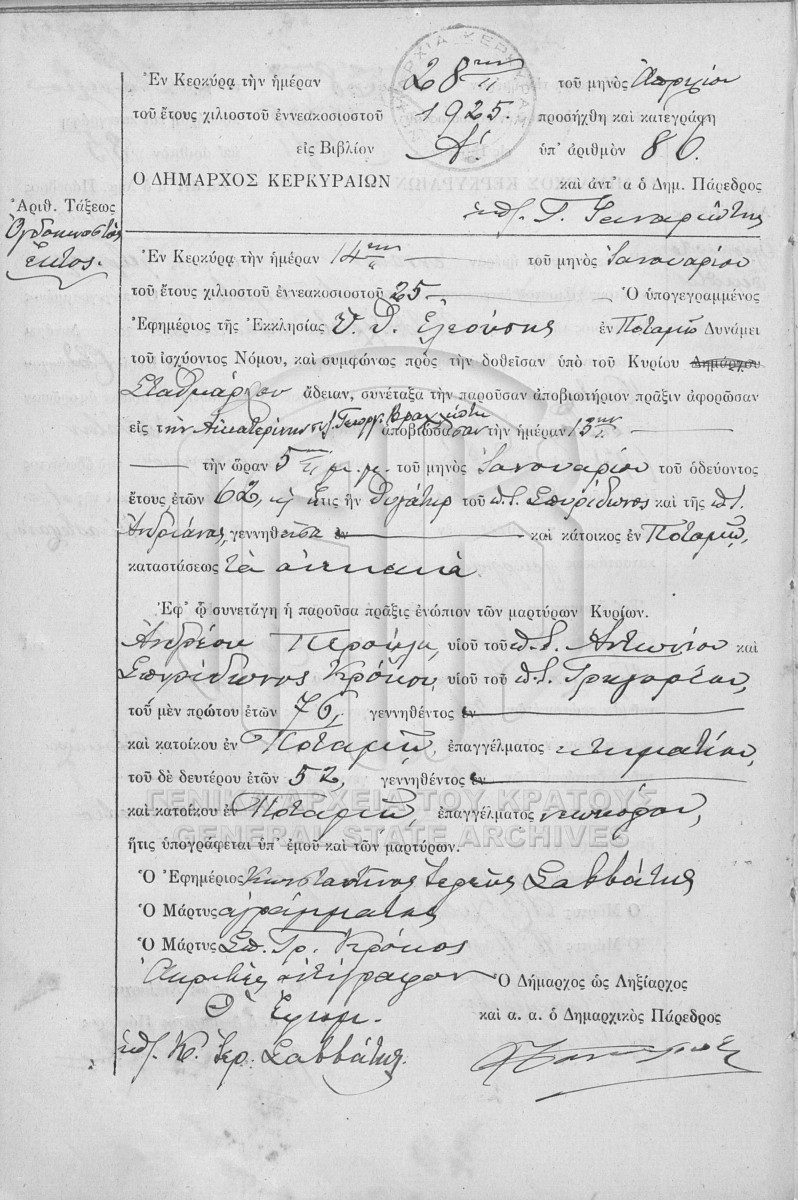 Ἐν Κερκύρᾳ τὴν ἡμέραν 28ην τοῦ μηνὸς Ἀπριλίου
τοῦ ἔτους χιλιοστοῦ ἐννεακοσιοστοῦ 1925. προσήχθη καὶ κατεγράφη
εἰς Βιβλίον Α΄. ὑπ' ἀριθμὸν 86.
Ο ΔΗΜΑΡΧΟΣ ΚΕΡΚΥΡΑΙΩΝ καὶ ἀντ' α ὁ Δημ. Πάρεδρος
Ἀριθ. Τάξεως
Ὀγδοηκοστὸς
Ἕκτος.
Ἐν Κερκύρᾳ τὴν ἡμέραν 14ην τοῦ μηνὸς Ἰανουαρίου
τοῦ ἔτους χιλιοστοῦ ἐννεακοσιοστοῦ 25 Ὁ ὑπογεγραμμένος
Ἐφημέριος τῆς Ἐκκλησίας Υ. Θ. Ελεούσης ἐν Ποταμῷ Δυνάμει
τοῦ ἰσχύοντος Νόμου, καὶ συμφώνως πρὸς τὴν δοθεῖσαν ὑπὸ τοῦ Κυρίου Δημάρχου
Σταθμάρχου ἄδειαν, συνέταξα τὴν παροῦσαν ἀποβιωτήριον πρᾶξιν ἀφορῶσαν
εἰς τὴν Αἰκατερίνην Γεωργ. ἀποβιώσασαν τὴν ἡμέραν 13ην
τὴν ὥραν 5ην μ.μ. τοῦ μηνὸς Ἰανουαρίου τοῦ ὁδεύοντος
ἔτους ἐτῶν 62, ἥτις ἦν θυγάτηρ τοῦ π.τ. Σπυρίδωνος καὶ τῆς π.τ.
Ἀνδριάνας, γεννηθεῖσα ἐν καὶ κάτοικος ἐν Ποταμῷ,
καταστάσεως τὰ οἰκιακά.
Ἐφ' ᾧ συνετάγη ἡ παροῦσα πρᾶξις ἐνώπιον τῶν μαρτύρων Κυρίων.
Ἀνδρέου υἱοῦ τοῦ π.τ. Ἀντωνίου καὶ
Σπυρίδωνος Κρόκου, υἱοῦ τοῦ π.τ. Γρηγορίου,
τοῦ μὲν πρώτου ἐτῶν 76, γεννηθέντος ἐν
καὶ κατοίκου ἐν Ποταμῷ, ἐπαγγέλματος κτηματίου,
τοῦ δὲ δευτέρου ἐτῶν 52, γεννηθέντος ἐν
καὶ κατοίκου ἐν Ποταμῷ, ἐπαγγέλματος νεωκόρου,
ΓΕΝΙΚΑ ΑΡΧΕΙΑ ΤΟΥ ΚΡΑΤΟΥΣ
GENERAL STATE ARCHIVES
ἥτις ὑπογράφεται ὑπ' ἐμοῦ καὶ τῶν μαρτύρων.
Ὁ Ἐφημέριος Κωνσταντῖνος Ἱερεὺς Σαββάτης
Ὁ Μάρτυς ἀγράμματος
Ὁ Μάρτυς Σπ. Γρ. Κρόκος
Ἀκριβὲς ἀντίγραφον Ὁ Δήμαρχος ὡς Ληξίαρχος
Ὁ Ἐφημ. καὶ α. α. ὁ Δημαρχικὸς Πάρεδρος
Κ. Ἱερ. Σαββάτης.